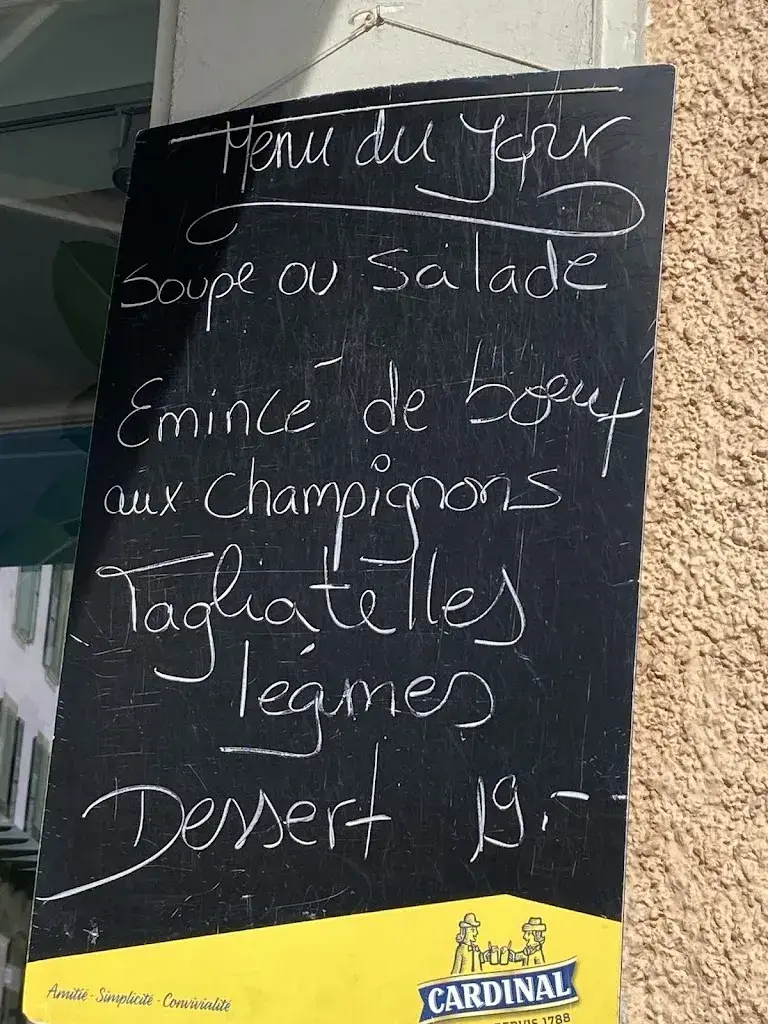 Menu du Jour
Soupe ou Salade
Emincé de boeuf
aux Champignons
Tagliatelles
légumes
Dessert 19.-
Amitié - Simplicité - Convivialité
CARDINAL
DEPUIS 1788